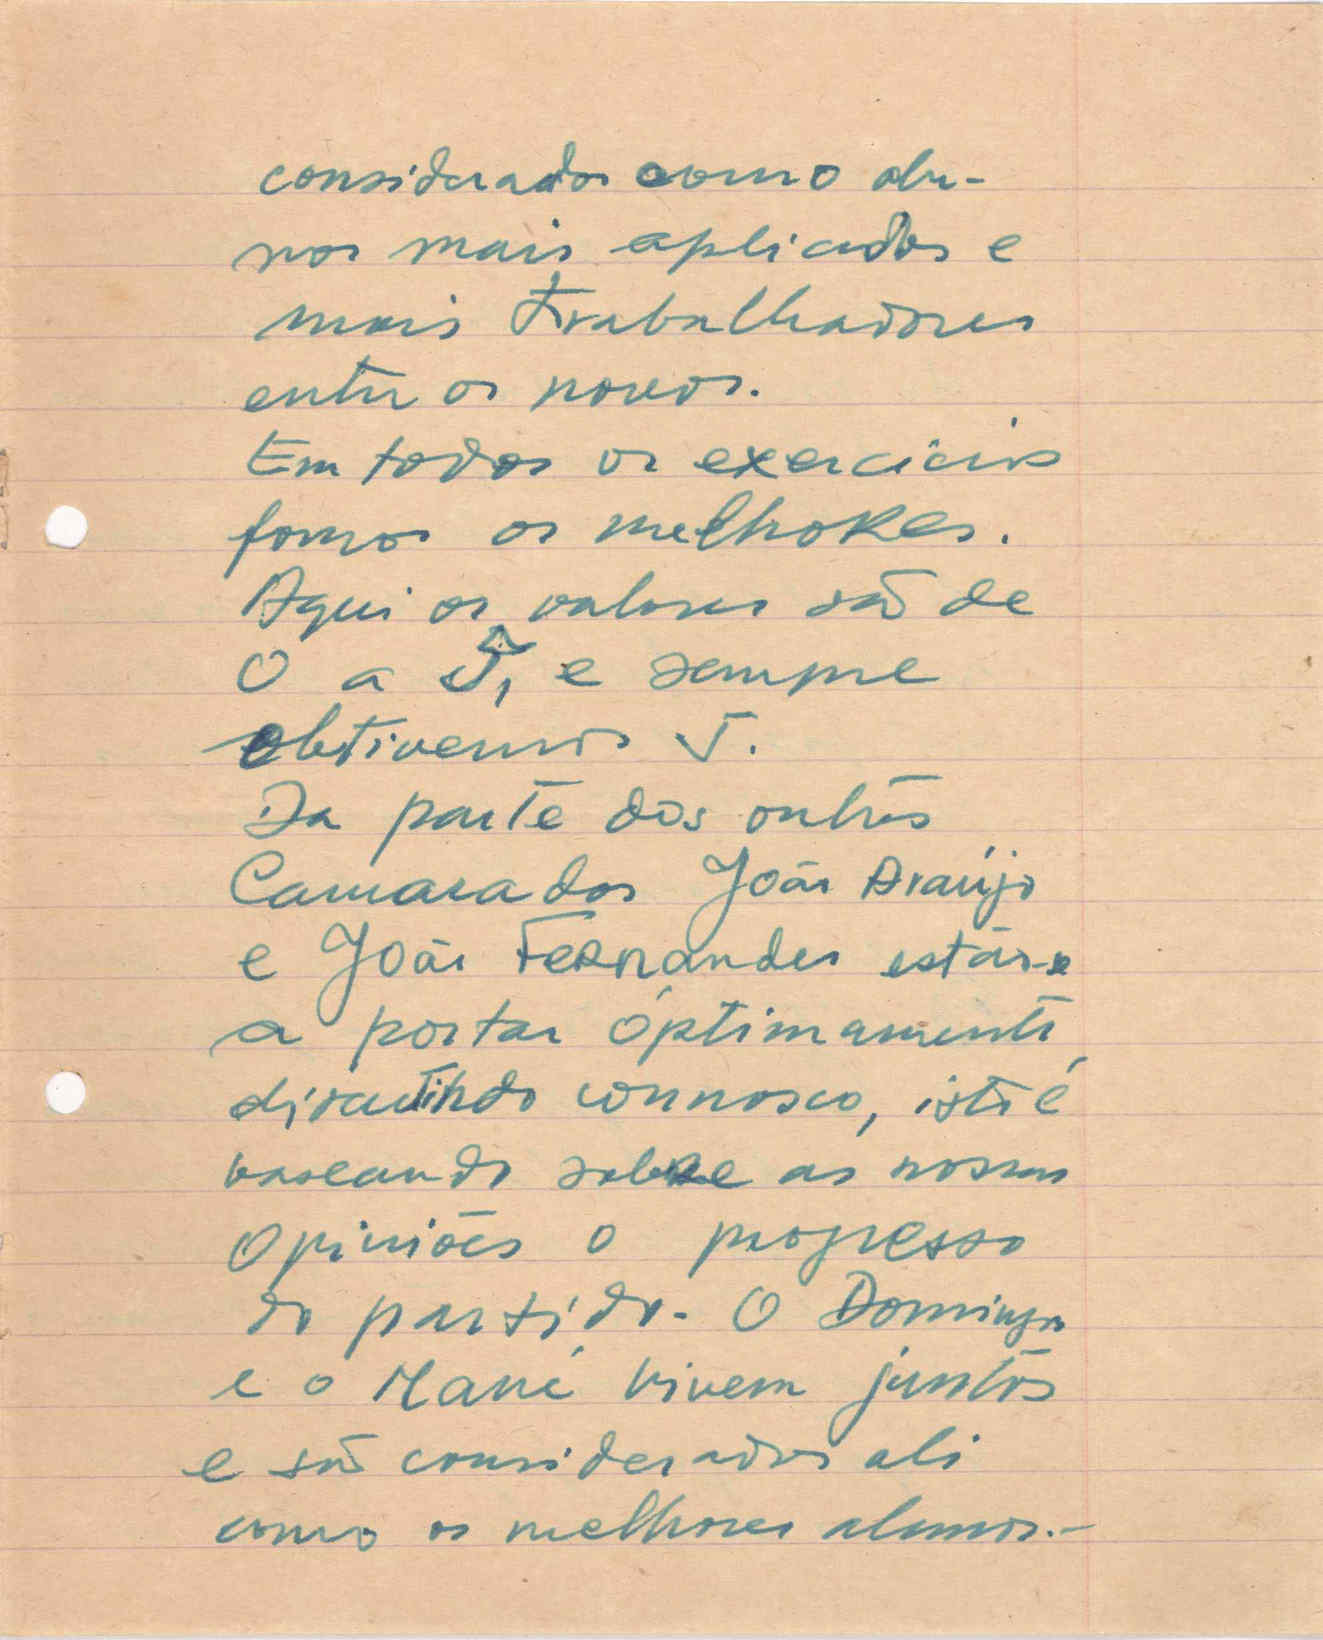 considerados como alu-
nos mais aplicados e
mais trabalhadores
entre os novos.
Em todos os exercícios
fomos os melhores.
Aqui os valores são de
0 a 5, e sempre
obtivemos 5.
Da parte dos outros
Camaradas João Araújo
e João Fernandes estão-se
a portar óptimamente,
discutindo connosco, isto é
baseando sobre as nossas
opiniões o progresso
do partido. O Domingos
e o Mané vivem juntos
e são considerados ali
como os melhores alunos.-